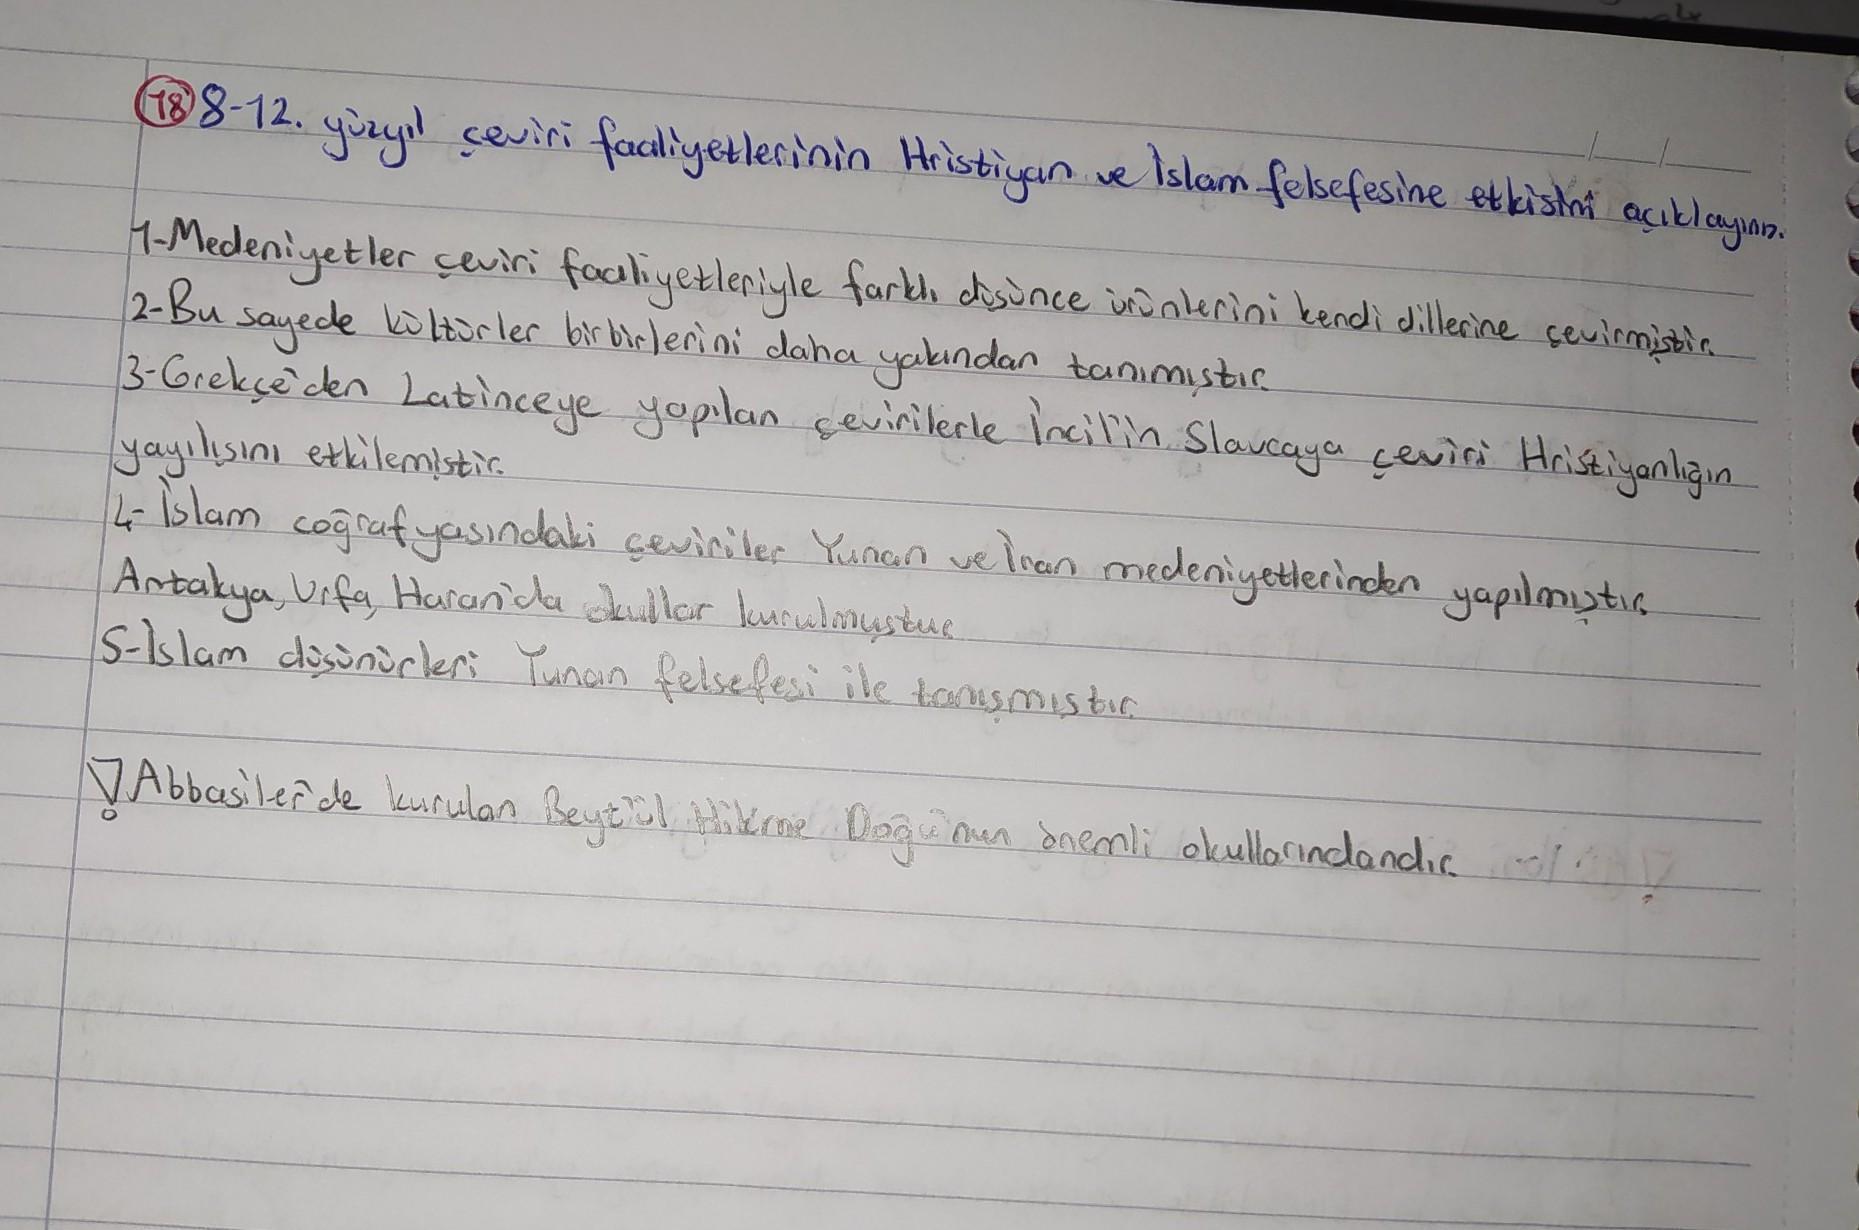 18 8-12. yüzyıl çeviri faaliyetlerinin Hristiyan ve İslam felsefesine etkisini açıklayınız.
1-Medeniyetler çeviri faaliyetleriyle farklı düşünce ürünlerini kendi dillerine çevirmiştir.
2-Bu sayede kültürler birbirlerini daha yakından tanımıştır.
3-Grekçe'den Latinceye yapılan çevirilerle İncil'in Slavcaya çeviri Hristiyanlığın
yayılışını etkilemiştir.
4-İslam coğrafyasındaki çeviriler Yunan ve İran medeniyetlerinden yapılmıştır.
Antakya, Urfa, Haran'da okullar kurulmuştur.
5-İslam düşünürleri Yunan felsefesi ile tanışmıştır.
Abbasiler'de kurulan Beyt'ül Hikme Doğu'nun önemli okullarındandır.